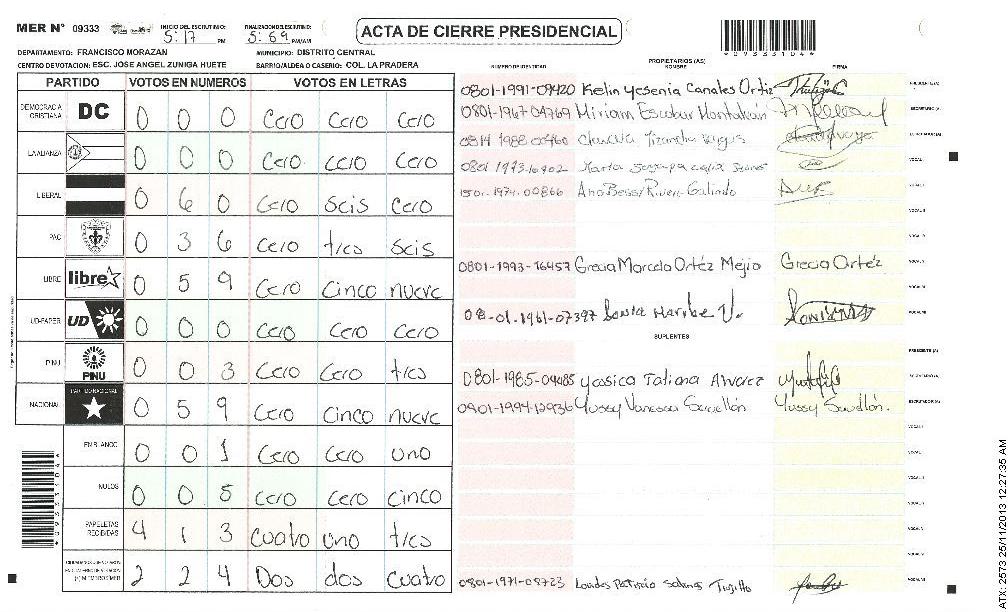 MER N° 09333 INICIO DEL ESCRUTINIO: 5:17 PM FINALIZACION DEL ESCRUTINIO: 5:69 PM/AM
ACTA DE CIERRE PRESIDENCIAL
*09333104*
DEPARTAMENTO: FRANCISCO MORAZAN MUNICIPIO: DISTRITO CENTRAL
CENTRO DE VOTACION: ESC. JOSE ANGEL ZUNIGA HUETE BARRIO/ALDEA O CASERIO: COL. LA PRADERA
PARTIDO VOTOS EN NUMEROS VOTOS EN LETRAS
DEMOCRACIA CRISTIANA DC 0 0 0 Cero Cero Cero
LA ALIANZA 0 0 0 Cero Cero Cero
LIBERAL 0 6 0 Cero seis Cero
PAC 0 3 6 Cero tres seis
LIBRE libre 0 5 9 Cero Cinco nueve
UD-FAPER UD 0 0 0 Cero Cero Cero
PINU PINU 0 0 3 Cero Cero tres
NACIONAL PARTIDO NACIONAL 0 5 9 Cero Cinco nueve
EN BLANCO 0 0 1 Cero Cero uno
NULOS 0 0 5 Cero Cero cinco
PAPELETAS RECIBIDAS 4 1 3 Cuatro uno tres
2 2 4 Dos dos cuatro
PROPIETARIOS (AS)
NUMERO DE IDENTIDAD NOMBRE FIRMA
0801-1991-09420 Kelin Yesenia Canales Ortiz PRESIDENTE (A)
0801-1967-04769 Miriam Escobar SECRETARIO (A)
0814 1988 00460 Claudia
VOCAL I
1501-1974-00866 Ana Bessy Rivera Galindo VOCAL II
VOCAL III
VOCAL IV
VOCAL V
0801-1993-16457 Grecia Marcela Ortéz Mejia Grecia Ortéz VOCAL VI
08-01-1961-07397 Santa Maribel V. VOCAL VII
SUPLENTES
PRESIDENTE (A)
0801-1985-04485 Yessica Tatiana Alvarez SECRETARIO (A)
0801-1994-12936 Yussy Vanessa Savellón Yussy Savellón. ESCRUTADOR (A)
VOCAL I
VOCAL II
VOCAL III
VOCAL IV
VOCAL V
VOCAL VI
0801-1971-08723 Lourdes Patricia Salinas Trujillo VOCAL VII
ATX 2573 25/11/2013 12:27:35 AM